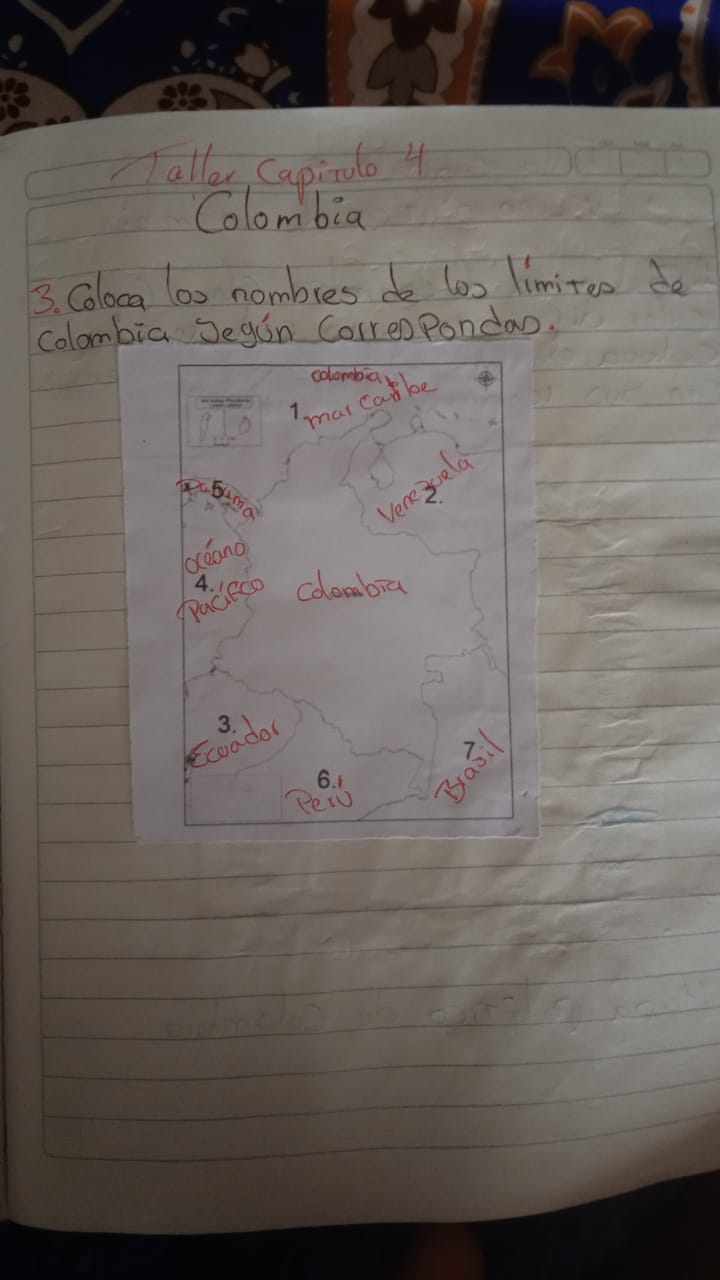 Taller Capitulo 4
Colombia
3. Coloca los nombres de los límites de
Colombia Según Correspondas.
colombia
1. mar caribe
5. Panamá
Venezuela
2.
océano
4.
Pacífico
Colombia
3.
Ecuador
6.
Perú
7.
Brasil